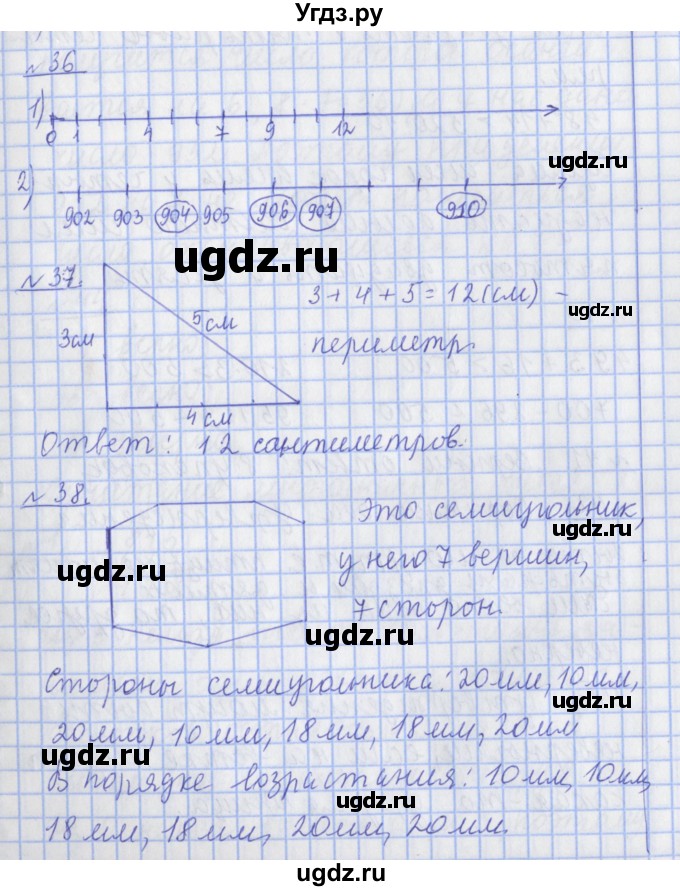 Угдз.ру
№36
1)
0 1 4 7 9 12
ugdz.ru
2)
902 903 904 905 906 907 910
ugdz.ru
ugdz.ru
№37.
3 + 4 + 5 = 12 (см) -
ugdz.ru
5 см
3 см
периметр.
4 см
Ответ: 12 сантиметров.
№38.
Это семиугольник,
ugdz.ru
у него 7 вершин,
ugdz.ru
7 сторон.
ugdz.ru
Стороны семиугольника: 20 мм, 10 мм,
20 мм, 10 мм, 18 мм, 18 мм, 20 мм
ugdz.ru
ugdz.ru
В порядке возрастания: 10 мм, 10 мм,
ugdz.ru
18 мм, 18 мм, 20 мм, 20 мм.
ugdz.ru